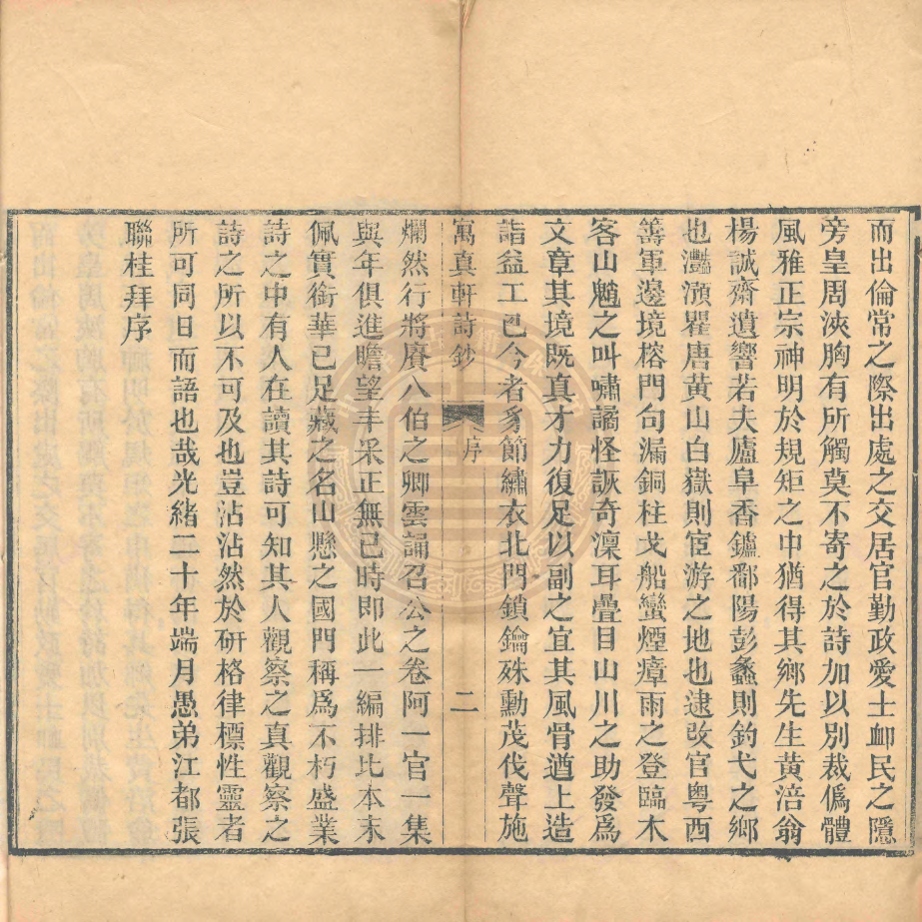 而出倫常之際出處之交居官勤政愛士衈民之隱
旁皇周浹胸有所觸莫不寄之於詩加以別裁僞體
風雅正宗神明於規矩之中猶得其鄉先生黃涪翁
楊誠齋遺響若夫廬阜香鑪鄱陽彭蠡則釣弋之鄉
也灩澦瞿唐黃山白嶽則宦游之地也逮改官粵西
籌軍邊境榕門句漏銅柱戈船蠻煙瘴雨之登臨木
客山魈之叫嘯譎怪詼奇凜耳疊目山川之助發爲
文章其境旣真才力復足以副之宜其風骨遒上造
詣益工已今者豸節繡衣北門鎖鑰殊勳茂伐聲施
寓真軒詩鈔 序 二
爛然行將賡八伯之卿雲誦召公之卷阿一官一集
與年俱進瞻望丰采正無已時即此一編排比本末
佩實銜華已足藏之名山懸之國門稱爲不朽盛業
詩之中有人在讀其詩可知其人觀察之真觀察之
詩之所以不可及也豈沾沾然於研格律標性靈者
所可同日而語也哉光緒二十年端月愚弟江都張
聯桂拜序